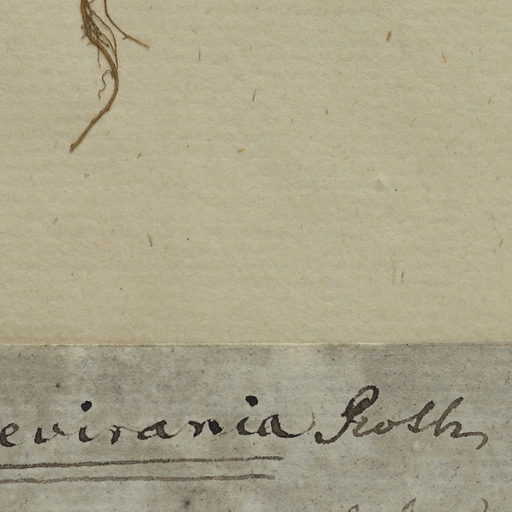 evirania Roth,